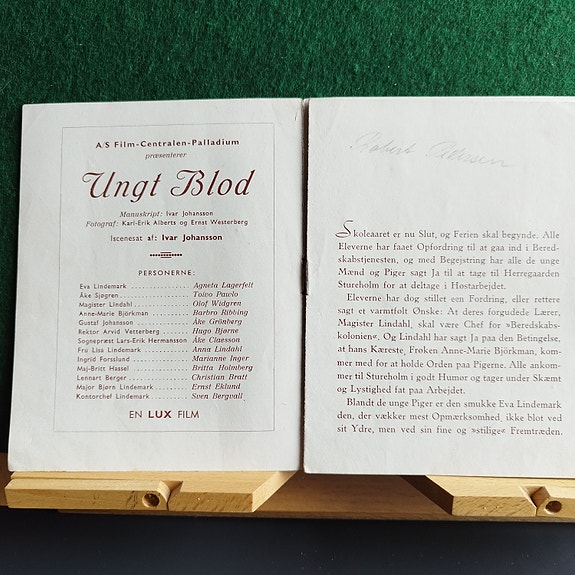 A/S Film-Centralen-Palladium
præsenterer
Ungt Blod
Manuskript: Ivar Johansson
Fotograf: Karl-Erik Alberts og Ernst Westerberg
Iscenesat af: Ivar Johansson
PERSONERNE:
Eva Lindemark .............. Agneta Lagerfelt
Åke Sjøgren ................. Toivo Pawlo
Magister Lindahl ............ Olof Widgren
Anne-Marie Björkman ........ Barbro Ribbing
Gustaf Johansson ............ Åke Grönberg
Rektor Arvid Vetterberg ..... Hugo Bjørne
Sognepræst Lars-Erik Hermansson Åke Claesson
Fru Lisa Lindemark .......... Anna Lindahl
Ingrid Forsslund ............ Marianne Inger
Maj-Britt Hassel ............ Britta Holmberg
Lennart Berger .............. Christian Bratt
Major Bjørn Lindemark ....... Ernst Eklund
Kontorchef Lindemark ........ Sven Bergvall
EN LUX FILM
Robert Petersen
Skoleaaret er nu Slut, og Ferien skal begynde. Alle
Eleverne har faaet Opfordring til at gaa ind i Bered-
skabstjenesten, og med Begejstring har alle de unge
Mænd og Piger sagt Ja til at tage til Herregaarden
Stureholm for at deltage i Høstarbejdet.
Eleverne har dog stillet een Fordring, eller rettere
sagt et varmtfølt Ønske: At deres forgudede Lærer,
Magister Lindahl, skal være Chef for »Beredskabs-
kolonien«. Og Lindahl har sagt Ja paa den Betingelse,
at hans Kæreste, Frøken Anne-Marie Björkman, kom-
mer med for at holde Orden paa Pigerne. Alle ankom-
mer til Stureholm i godt Humor og tager under Skæmt
og Lystighed fat paa Arbejdet.
Blandt de unge Piger er den smukke Eva Lindemark
den, der vækker mest Opmærksomhed, ikke blot ved
sit Ydre, men ved sin fine og »stilige« Fremtræden.